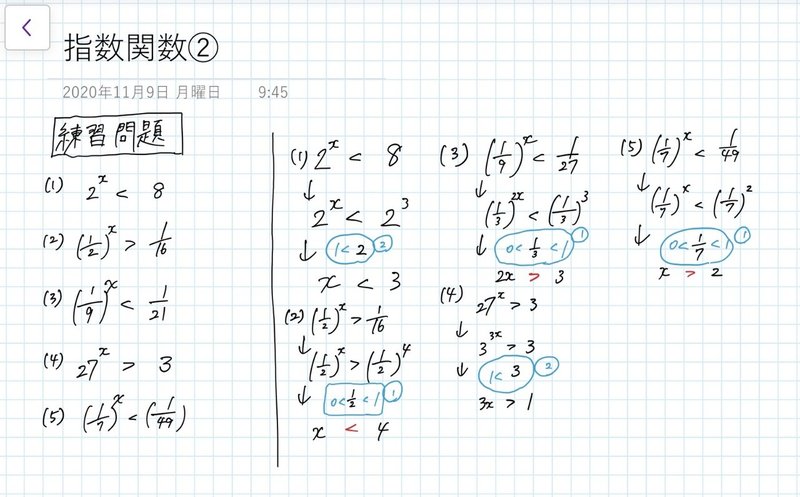 指数関数②
2020年11月9日 月曜日 9:45
練習問題
(1) 2^x < 8
(2) (1/2)^x > 1/16
(3) (1/9)^x < 1/21
(4) 27^x > 3
(5) (1/7)^x < (1/49)
(1) 2^x < 8
↓
2^x < 2^3
↓ 1<2 ②
x < 3
(2) (1/2)^x > 1/16
↓
(1/2)^x > (1/2)^4
↓ 0<1/2<1 ①
x < 4
(3) (1/9)^x < 1/27
↓
(1/3)^2x < (1/3)^3
↓ 0<1/3<1 ①
2x > 3
(4) 27^x > 3
↓
3^3x > 3
↓ 1<3 ②
3x > 1
(5) (1/7)^x < 1/49
↓
(1/7)^x < (1/7)^2
↓ 0<1/7<1 ①
x > 2